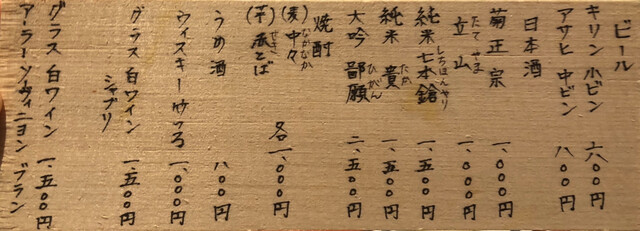 ビール
キリン小ビン 六〇〇円
アサヒ中ビン 八〇〇円
日本酒
菊正宗 一、〇〇〇円
立山 一、〇〇〇円
たてやま
純米 七本鎗 一、五〇〇円
しちほんやり
純米 貴 一、五〇〇円
たか
大吟 鄙願 二、五〇〇円
ひがん
焼酎
(麦)中々
なかなか
(芋) 各一、〇〇〇円
うめ酒 八〇〇円
ウィスキー 一、〇〇〇円
グラス 白ワイン 一、五〇〇円
シャブリ
グラス 白ワイン 一、五〇〇円
ソーヴィニヨン ブラン